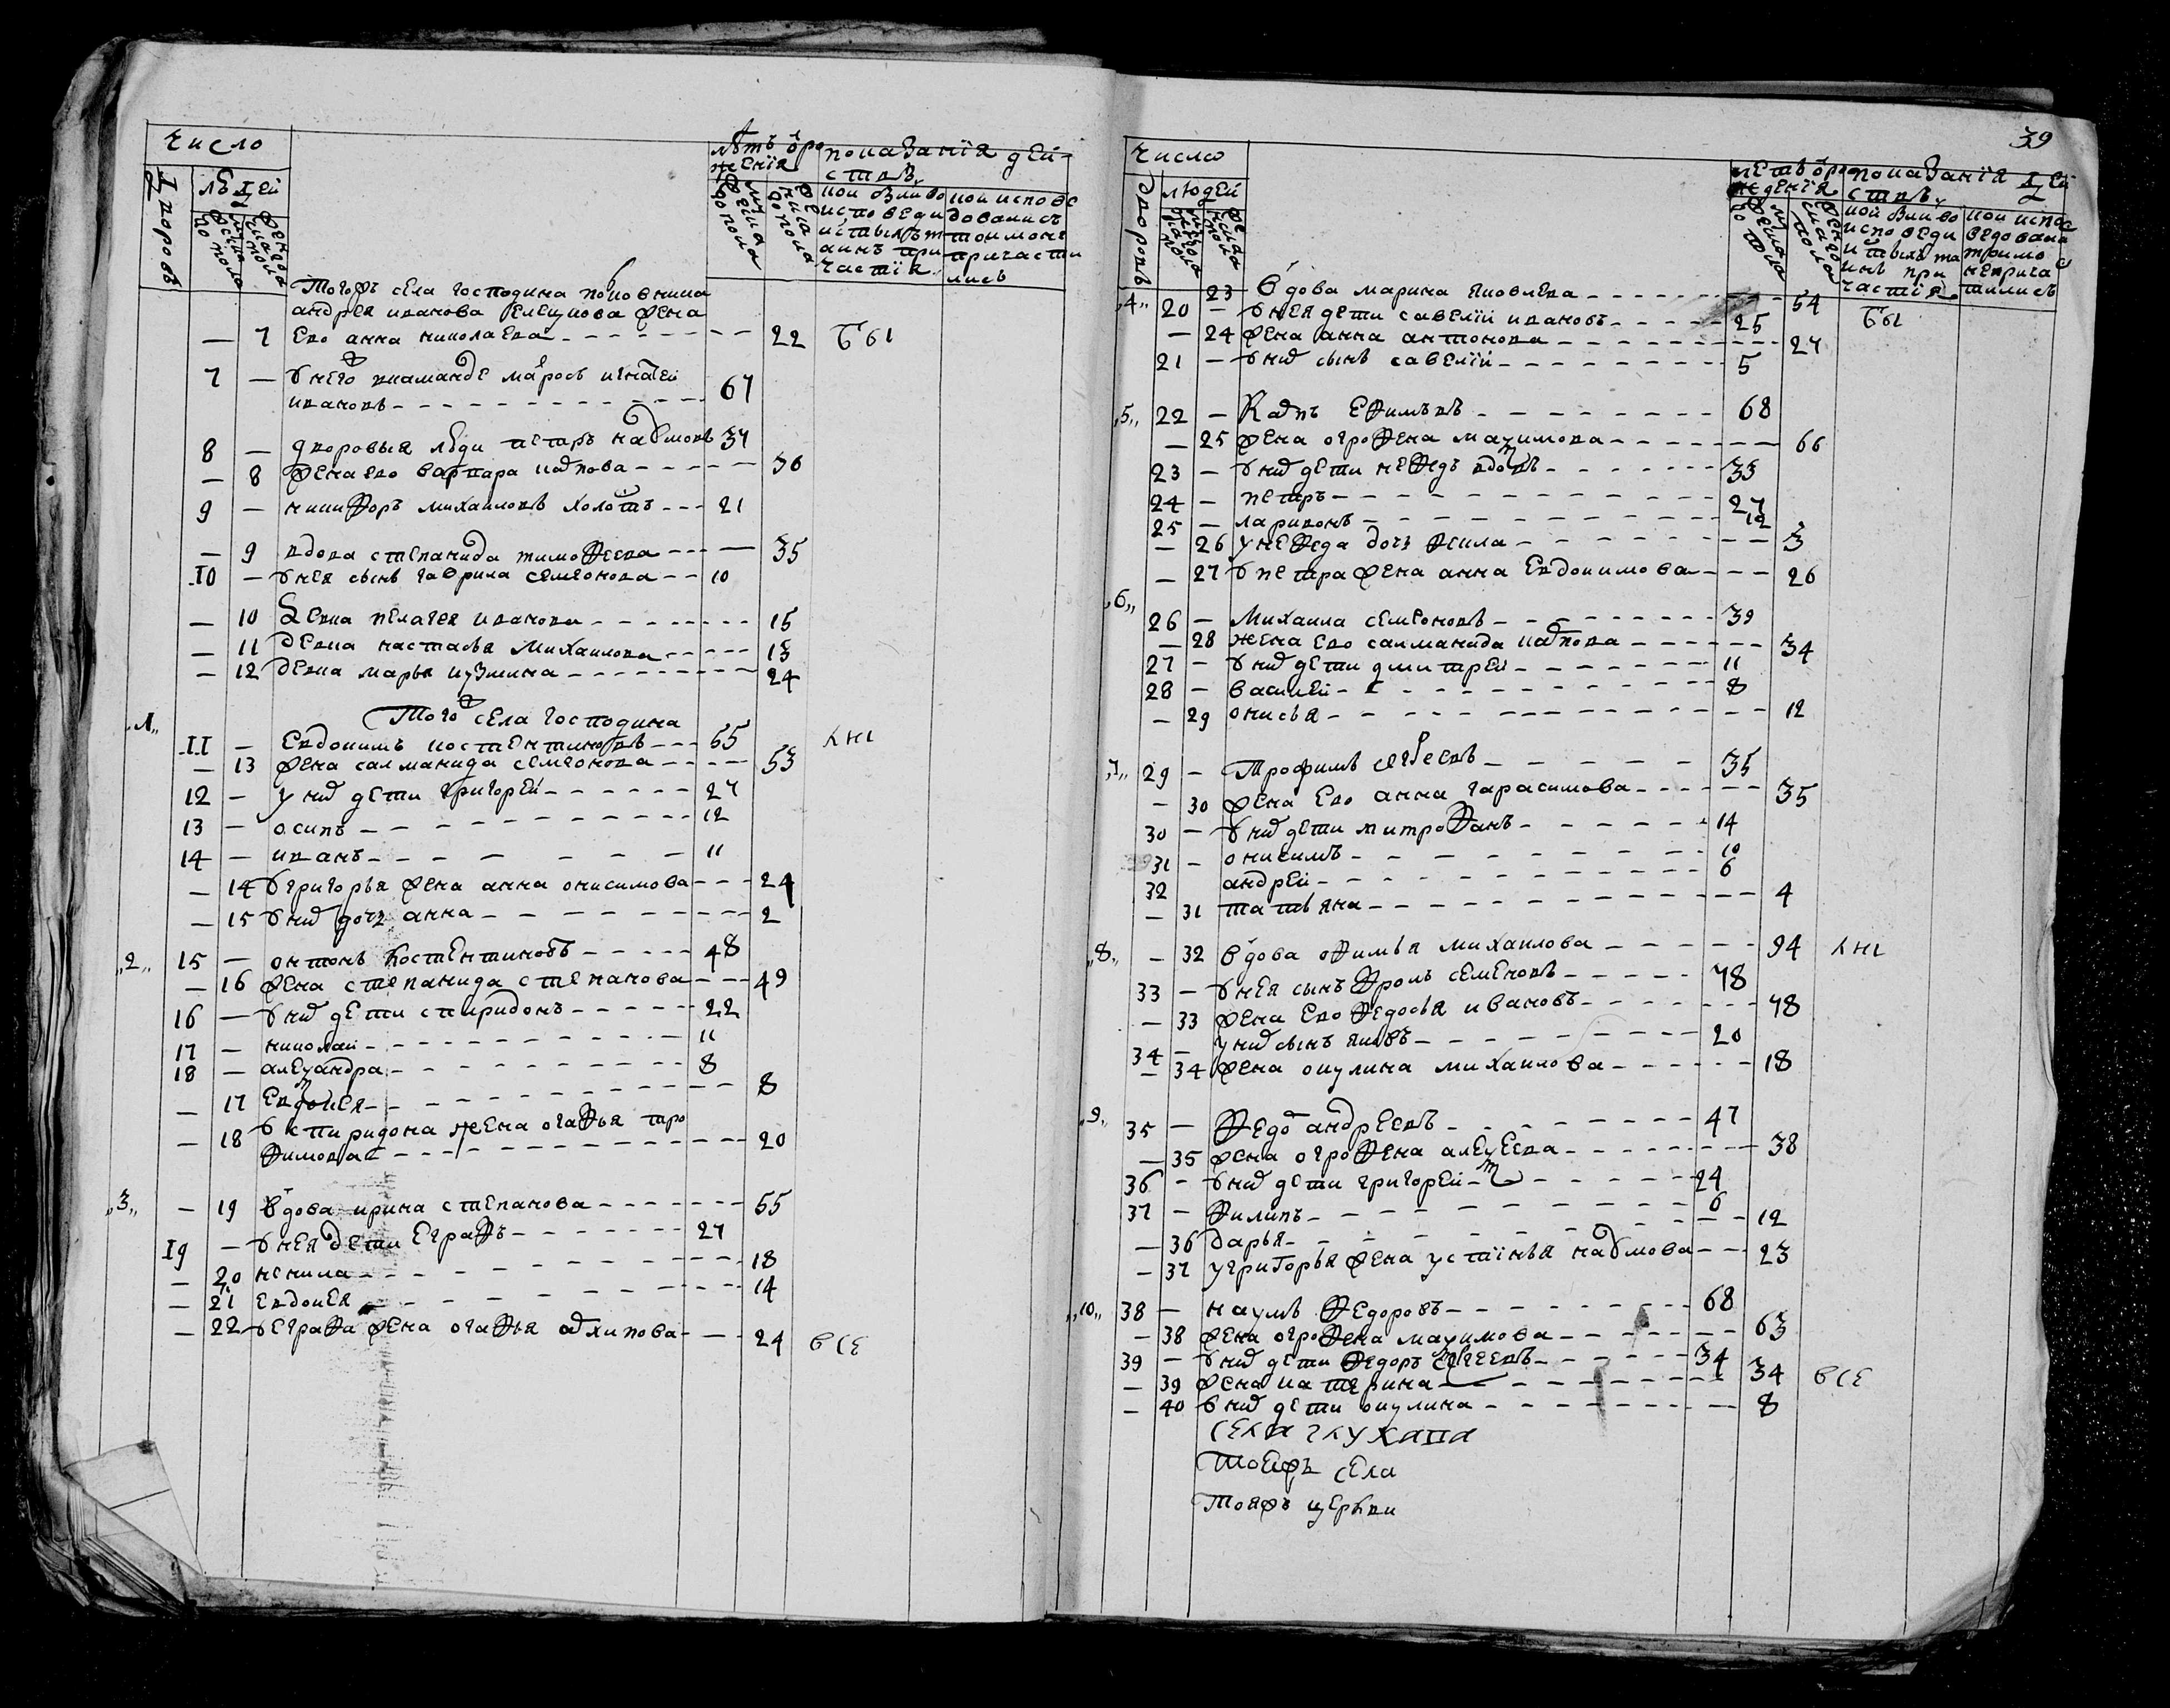 число
лѣтъ ѿ ро
жденїя
показанїя дей
ствъ
дворовъ
людей
мужеска
полу
женска
полу
мужеска
полу
женска
полу
кои были во
исповеди
и стыхъ т
аинъ при
частїя
кои испове
довались
токмо не
причасти
лись
тогожъ села господина полковника
андрея иванова жена
— 7 ево анна николаева 22 бы
7 — у него в камандѣ игнатей
ивановъ 67
8 — дворовыя люди петръ наумовъ 37
— 8 жена ево варвара карпова 36
9 — никифоръ михаиловъ холостъ 21
— 9 вдова степанида тимофеева 35
10 — у нея сынъ гаврила семенова 10
— 10 девка пелагея иванова 15
— 11 девка настасья михаилова 15
— 12 девка марья кузмина 24
Того села господина
1 11 — евдокимъ костентиновъ 55 ли
— 13 жена саламанида семенова 53
12 — у них дети григорей 27
13 — осипъ 12
14 — иванъ 11
— 14 у григорья жена анна онисимова 24
— 15 у них дочь анна 2
2 15 — онтонъ костентиновъ 48
— 16 жена степанида степанова 49
16 — у них дети спиридонъ 22
17 — николай 11
18 — александра 8
— 17 евдокея 8
— 18 у спиридона жена огафья тро
фимова 20
3 — 19 вдова ирина степанова 55
19 — у нея дети еграфъ 27
— 20 ненила 18
— 21 евдокея 14
— 22 у еграфа жена огафья архипова 24 все
39
число
лѣтъ ѿ ро
жденїя
показанїя дей
ствъ
дворовъ
людей
кои были во
исповеди
и стыхъ та
инъ при
частїя
кои испов
едовались
токмо
не прича
стились
4 — 23 вдова марина яковлева 54 бы
20 — у нея дети савелїй ивановъ 25
— 24 жена анна антонова 27
21 — у них сынъ савелїй 5
5 22 — карпъ ефимъвъ 68
— 25 жена огрофена маѯимова 66
23 — у них дети нефедъ вдовъ 33
24 — петръ 27
25 — ларивонъ 12
— 26 у нефеда дочь фекла 3
— 27 у петра жена анна евдокимова 26
6 26 — михаила семеновъ 39
— 28 жена ево саламанида карпова 34
27 — у них дети дмитрей 11
28 — василей 8
— 29 онисья 12
7 29 — трофимъ сергеевъ 35
— 30 жена ево анна гарасимова 35
30 — у них дети митрофанъ 14
31 — онисимъ 10
32 андрей 6
— 31 татьяна 4
8 — 32 вдова офимья михаилова 94 ли
33 — у нея сынъ фролъ семеновъ 48
— 33 жена ево федосья ивановъ 48
34 — у них сынъ яковъ 20
— 34 жена окулина михаилова 18
9 35 — федоръ андреевъ 47
— 35 жена огрофена алеѯеева 38
36 — у них дети григорей 24
37 — филипъ 6
— 36 дарья 12
— 37 у григорья жена устїнья наумова 23
10 38 — наумъ федоровъ 68
— 38 жена огрофена маѯимова 63
39 — у них дети федоръ сергеевъ 34
— 39 жена катерина 34 все
— 40 у них дети окулина 8
села
тоежъ села
тояжъ церкви